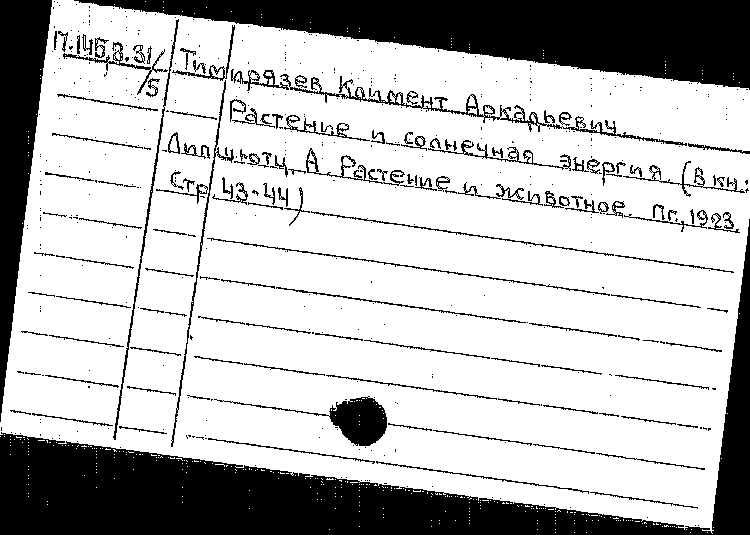 П.145,8.31/5 Тимирязев, Климент Аркадьевич.
Растение и солнечная энергия. (В кн.:
Липшютц, А. Растение и животное. Пг., 1923.
Стр. 43-44)